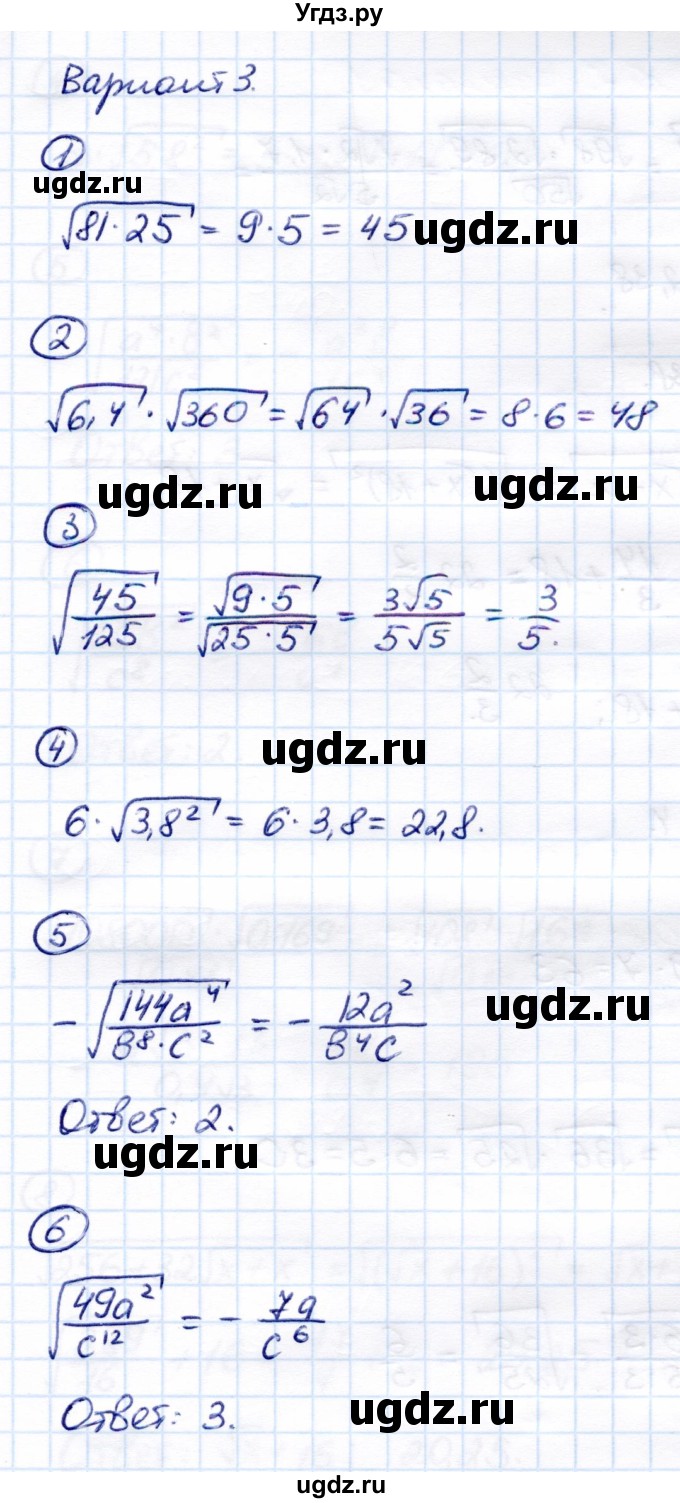 Угдз.ру
Вариант 3.
1
ugdz.ru
√81·25 = 9·5 = 45 ugdz.ru
2
√6,4 · √360 = √64 · √36 = 8·6 = 48
ugdz.ru ugdz.ru
3
√(45/125) = √9·5/√25·5 = 3√5/5√5 = 3/5.
4 ugdz.ru
6·√3,8² = 6·3,8 = 22,8.
5
-√(144a⁴/в⁸·c²) = -12a²/в⁴c ugdz.ru
Ответ: 2.
ugdz.ru
6
√(49a²/c¹²) = -7a/c⁶
Ответ: 3. ugdz.ru
ugdz.ru